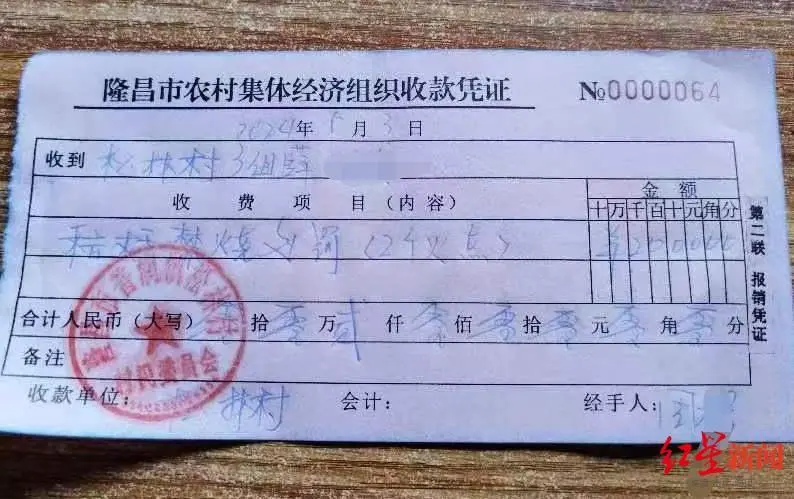 隆昌市农村集体经济组织收款凭证 №0000064
2024年5月3日
收到 松林村3组薛
收费项目（内容） 金额
十万千百十元角分
秸秆禁烧处罚（2个火点） ¥200000
合计人民币（大写）零拾零万贰仟零佰零拾零元零角零分
备注
收款单位：松林村 会计： 经手人：
第二联 报销凭证
村民委员会
红星新闻